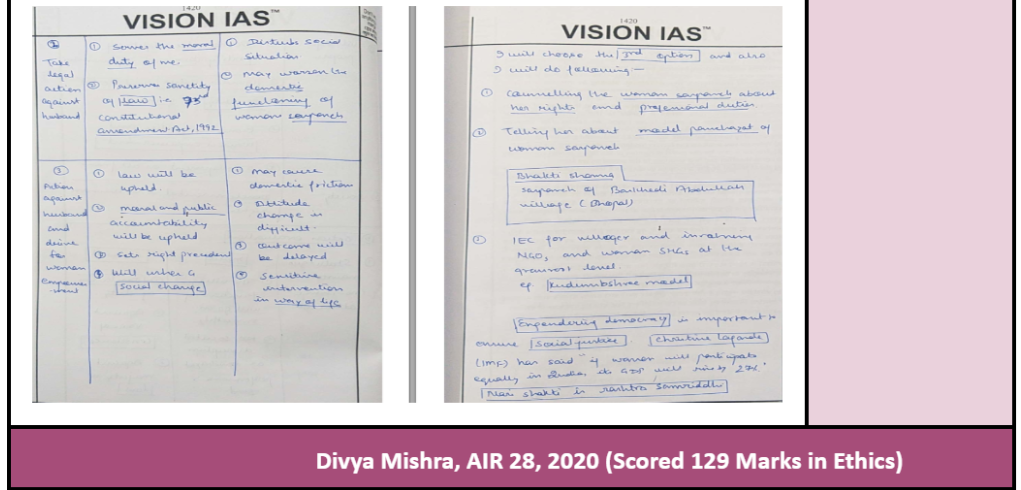 1420
VISION IAS™
②
Take
legal
action
against
husband
① Serves the moral
duty of me.
② Preserve sanctity
of law i.e 73rd
constitutional
amendment Act, 1992
① Disturb social
situation
② may worsen the
domestic
functioning of
woman sarpanch
③
Action
against
husband
and
drive
for
woman
Empower
ment
① law will be
upheld.
② moral and public
accountability
will be upheld
③ Sets right precedent
④ Will usher a
social change
① may cause
domestic friction
② Attitude
change is
difficult.
③ Outcome will
be delayed
④ Sensitive
intervention
in way of life
1420
VISION IAS™
I will choose the 3rd option and also
I will do following —
① Counselling the woman sarpanch about
her rights and professional duties.
② Telling her about model panchayat of
woman sarpanch
Bhakti Sharma
sarpanch of Barkhedi Abdullah
village (Bhopal)
③ IEC for villager and involving
NGO, and woman SHGs at the
grassroot level.
eg. Kudumbshree model
Engendering democracy is important to
ensure social justice. Christine Lagarde
(IMF) has said "if woman will participate
equally in India, its GDP will rise by 27%."
Nari shakti is rashtra samriddhi
Divya Mishra, AIR 28, 2020 (Scored 129 Marks in Ethics)